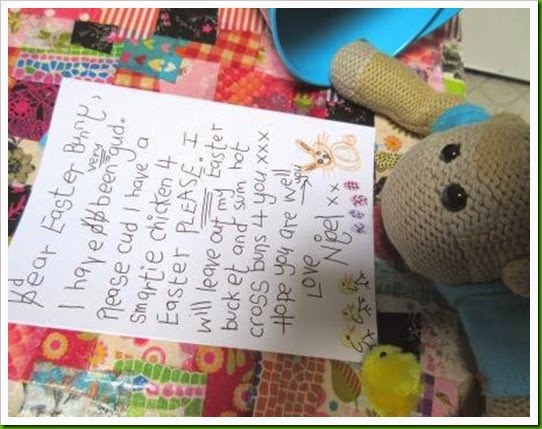 Dear Easter Bunny,
I have been very gud.
Please cud I have a
smartie chicken 4
Easter PLEASE. I
will leave out my Easter
bucket and sum hot
cross buns 4 you xxx
Hope you are well
Love
Nigel xx